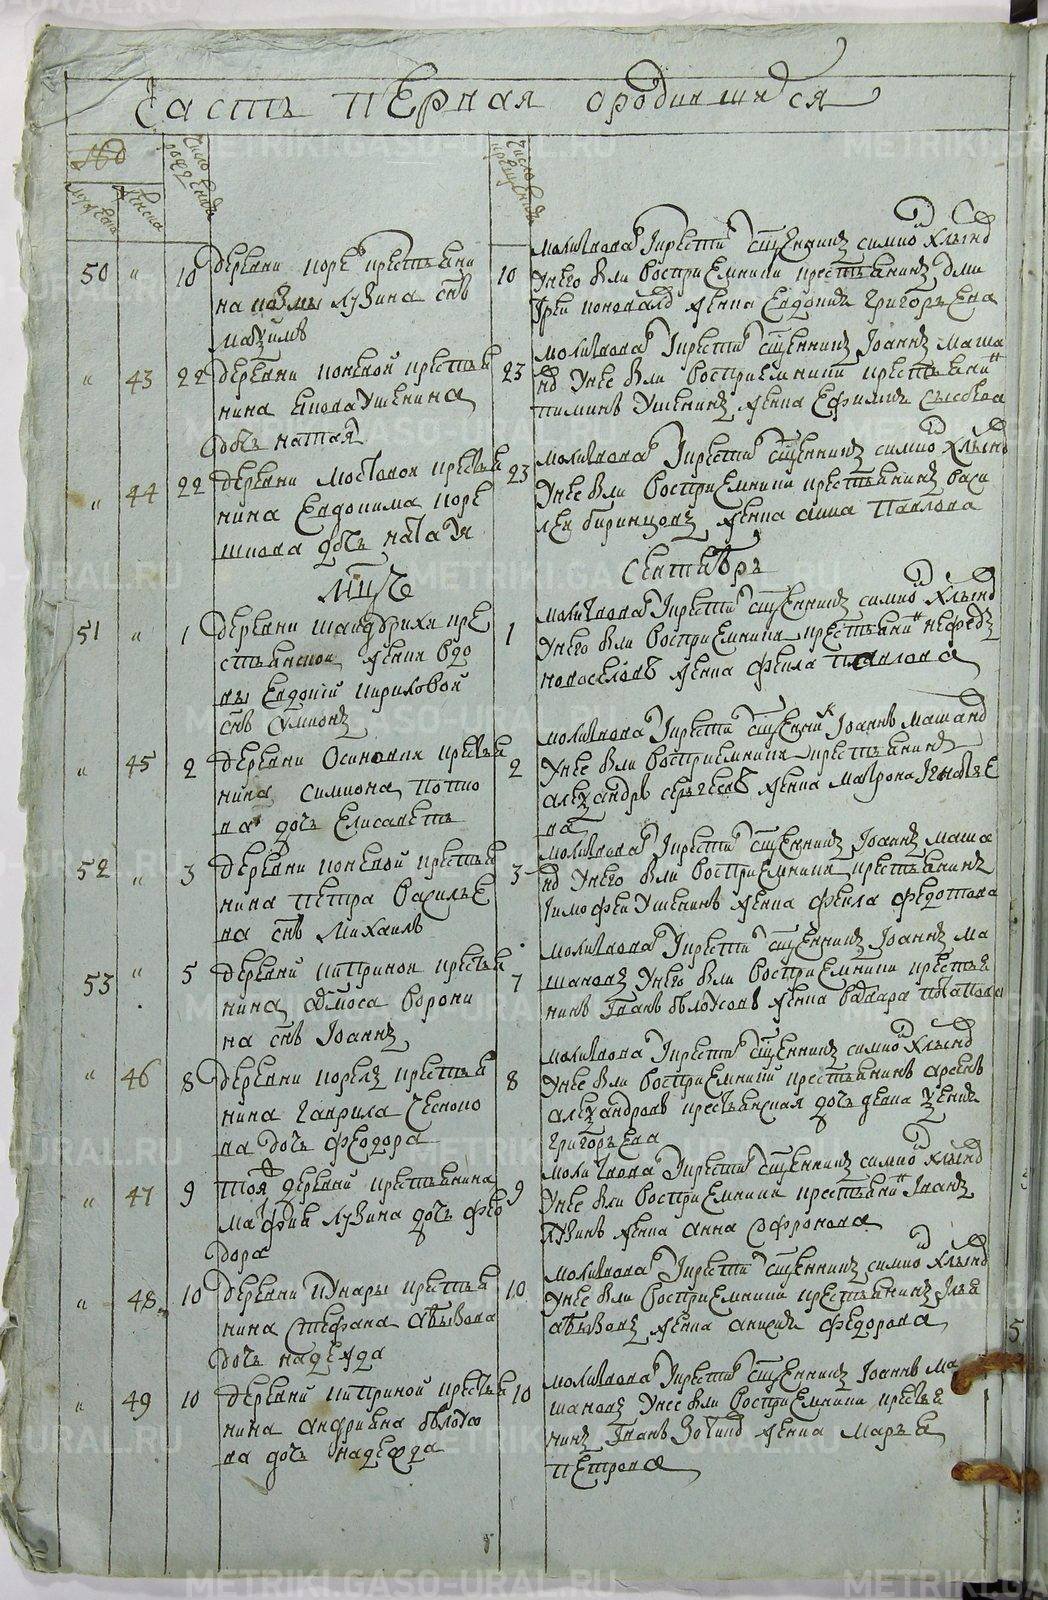 Часть перная ородившихся
№
мужеска
женска
число рожд
число крещен
50 " 10 деревни корє крестьяни
на Лузина снъ
маѯимъ
10 молитвова і крестил сщенникъ симио Хлынд
унего были восприемники крестьянинъ дми
трей коновалд женка Евдокиѧ григорьева
" 43 22 деревни коневой крестьѧ
нина Ушенина
дочь наталѧ
23 молитвова і крестил сщенникъ Іоаннъ маша
нд унее были восприемники крестьѧни
Ушенинъ женка Ефимиѧ Сысоева
" 44 22 деревни мостовои крестьѧ
нина Евдокима коре
шкова дочь наталя
23 молитвова і крестил сщенникъ симио Хлынд
унее были восприемники крестьянинъ васи
лей биринцовъ женка анна Павлова
Мцъ Сентябрь
51 " 1 деревни шандрихи кре
стьянскои женки вдо
вы Евдокіи кириловой
снъ Сумионъ
1 молитвова і крестил сщенникъ симио Хлынд
унего были восприемники крестьяни нефедъ
новоселовъ женка фекла Павлова
" 45 2 деревни Осиновки крестьѧ
нина симиона Попко
ва дочь Елисаветъ
2 молитвова і крестил сщенни Іоаннъ машанд
унее были восприемники крестьянинъ
алеѯандръ сергеевъ женка матрона Ігнатье
ва
52 " 3 деревни коневой крестьѧ
нина Петра Василье
ва снъ Михаилъ
3 молитвова і крестил сщенникъ Іоаннъ маша
нд унего были восприемники крестьянинъ
тимофей Ушенинъ женка фекла федотова
53 " 5 деревни киприной крестьѧ
нина амоса Ворони
на снъ Іоаннъ
7 молитвова і крестил сщенникъ Іоаннъ ма
шановъ унего были восприемники крестьѧ
нинъ Іванъ белоусовъ женка варвара потапова
" 46 8 деревни корелъ крестьѧ
нина гаврила Чесноко
ва дочь феодора
8 молитвова і крестил сщенникъ симио Хлынд
унее были восприемники крестьянинъ арсенъ
алеѯандровъ крестьянская дочь девка ѯениѧ
григорьева
" 47 9 тоя деревни крестьянина
матфиѧ Лузина дочь фео
дора
9 молитвова і крестил сщенникъ симио Хлынд
унее были восприемники крестьяни Іванъ
Лузинъ женка анна Софронова
" 48 10 деревни кунары крестьѧ
нина Стефана абызова
дочь надежда
10 молитвова і крестил сщенникъ симио Хлынд
унее были восприемники крестьянинъ Ілья
абызовъ женка анисиѧ федорова
" 49 10 деревни киприной крестьѧ
нина андрияна белоусо
ва дочь надежда
10 молитвова і крестил сщенникъ Іоаннъ ма
шановъ унее были восприемники крестьѧ
нинъ Іванъ Зотинд женка Марья
Петрова
5
METRIKI.GASO-URAL.RU